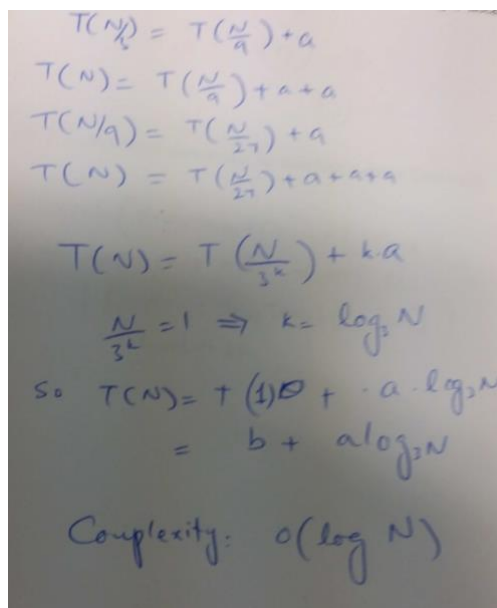 T(N/3) = T(N/9) + a
T(N) = T(N/9) + a + a
T(N/9) = T(N/27) + a
T(N) = T(N/27) + a + a + a
T(N) = T(N/3^k) + k.a
N/3^k = 1 ⇒ k = log₃N
So T(N) = T(1) + .a.log₃N
= b + a log₃N
Complexity: O(log N)